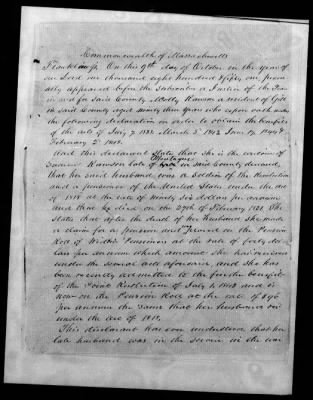 Commonwealth of Massachusetts
Franklin ss. On this 9th day of October in the year of
our Lord one thousand eight hundred & fifty one per
ally appeared before the Subscriber a Justice of the Peace
in and for said County Molly Ranson a resident of Gill
in said County aged ninety three years who upon oath makes
the following declaration in order to obtain the benefits
of the acts of July 7 1838. March 3d 1843 June 17 1844 &
February 2d 1848.
And this declarant states that she is the widow of
Montague
Ranson late of in said County deceased,
that her said husband was a Soldier of the Revolution
and a pensioner of the United States under the act
of 1818 at the rate of ninety six dollars per annum
and that he died on the 29th of February 1821. She
states that after the death of her Husband she made
a claim for a pension and placed on the Pension
Roll of Widows Pensioners at the rate of forty dol-
lars per annum which amount she has received
under the several acts aforesaid, and she has
been recently admitted to the further benefit
of the Joint Resolution of July 1, 1848 and is
now on the Pension Roll at the rate of $96
per annum the same that her husband
under the act of 1818.
This declarant has ever understood that her
late husband was in the service in the war